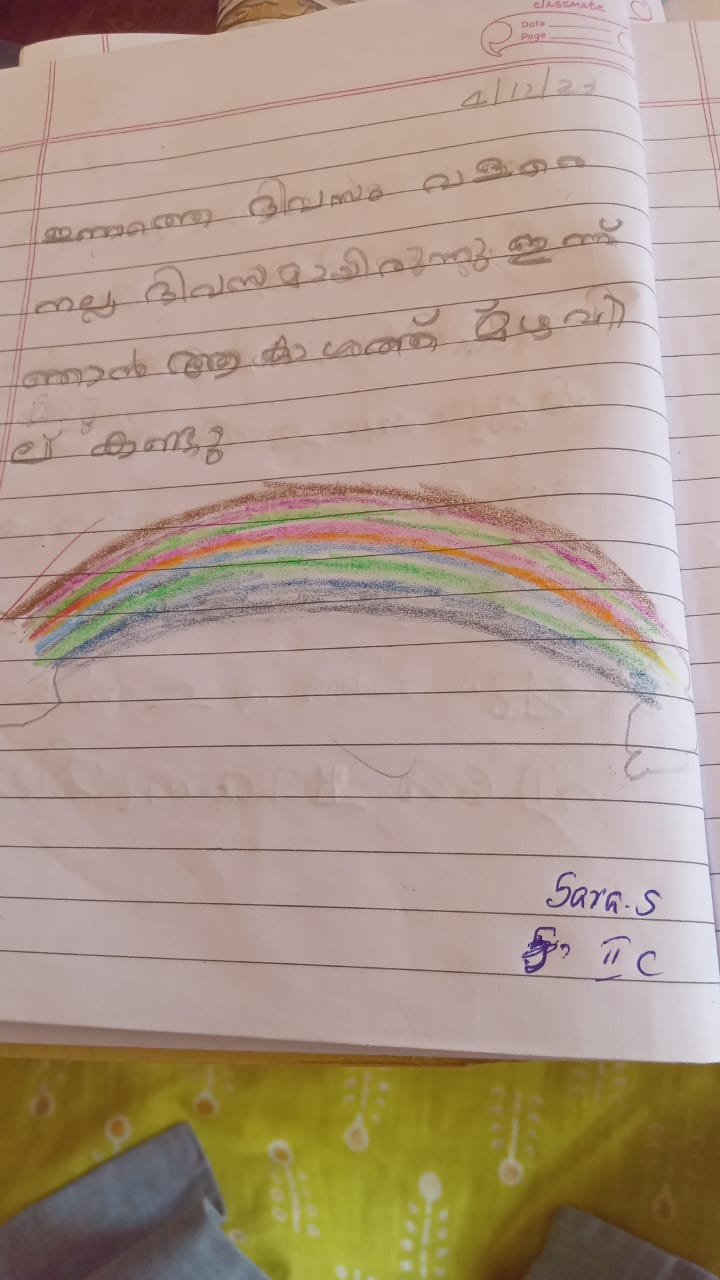 classmate
Date
Page
4/12/23
ഇന്നത്തെ ദിവസം വളരെ
നല്ല ദിവസമായിരുന്നു ഇന്ന്
ഞാൻ ആകാശത്ത് മഴവി
ല്ല് കണ്ടു
Sara.S
II C